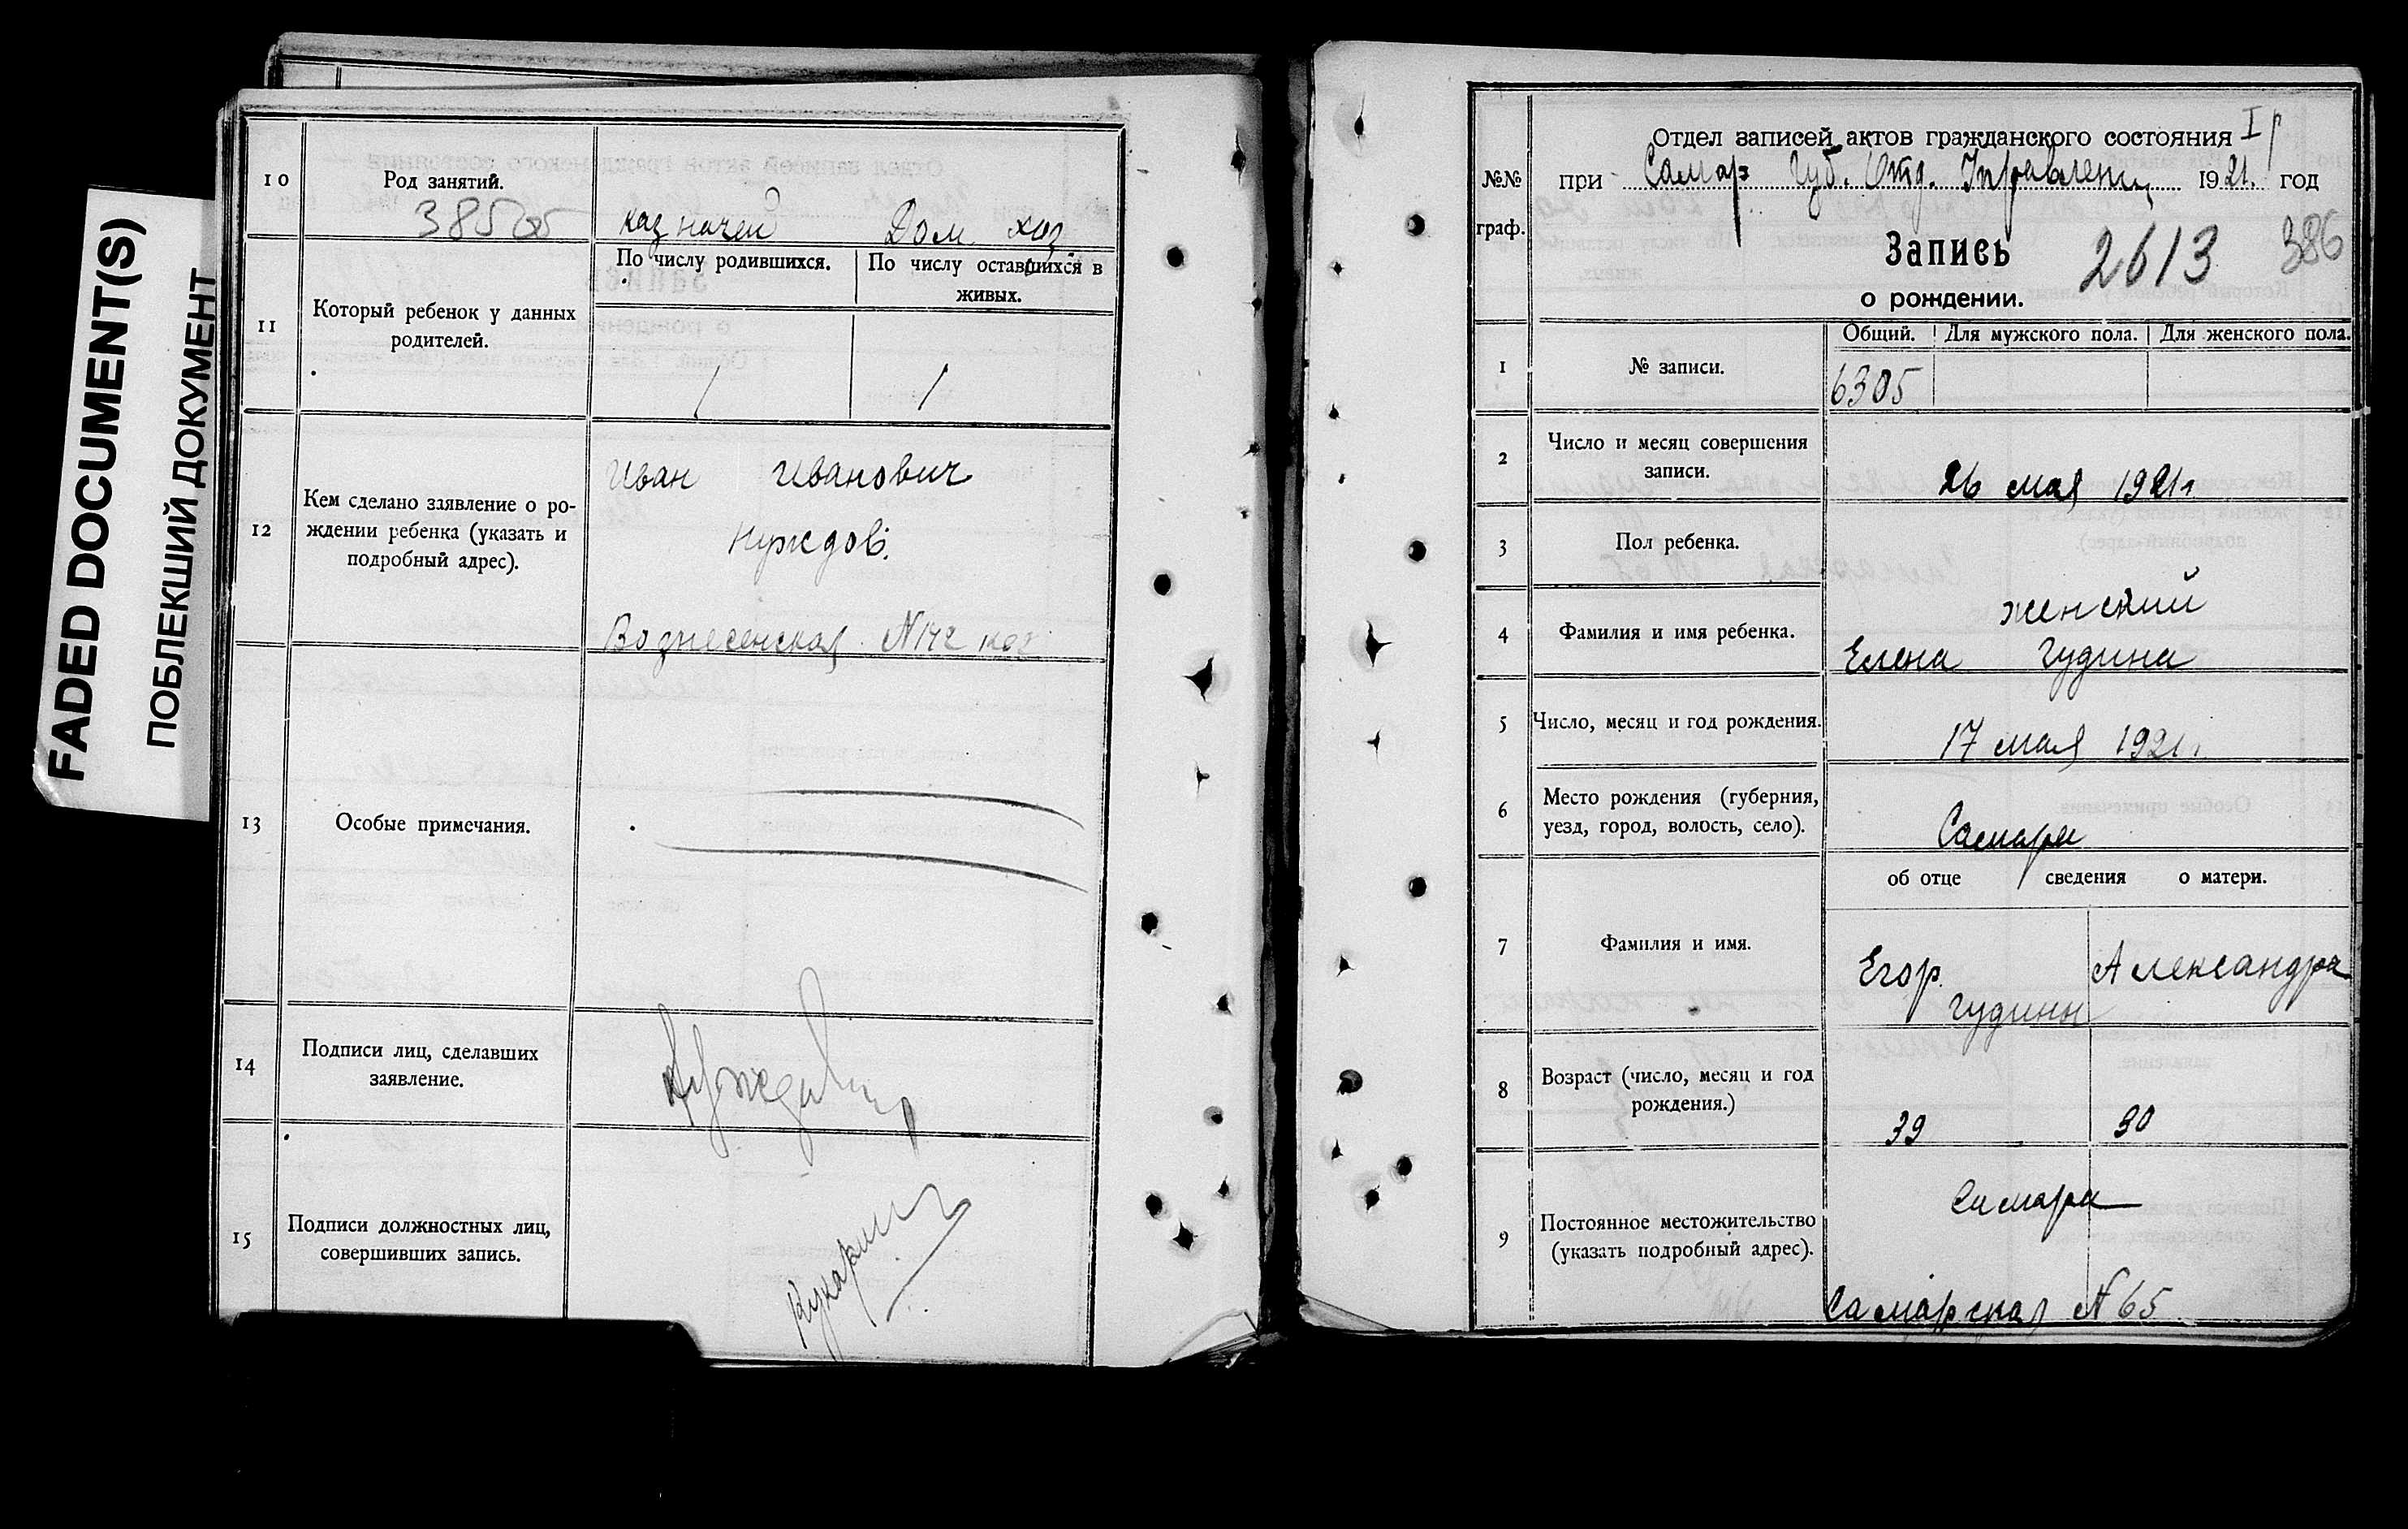 FADED DOCUMENT(S)
ПОБЛЕКШИЙ ДОКУМЕНТ
10
Род занятий.
385 об
казначей Дом. хоз.
11
Который ребенок у данных
родителей.
По числу родившихся.
По числу оставшихся в
живых.
1 1
12
Кем сделано заявление о ро-
ждении ребенка (указать и
подробный адрес).
Иван Иванович
Нуждов.
Вознесенская N142
13
Особые примечания.
14
Подписи лиц, сделавших
заявление.
15
Подписи должностных лиц,
совершивших запись.
№№
граф.
Отдел записей актов гражданского состояния I р
при Самар Губ. Отд. Управлени 1921. год
Запись 2613 386
о рождении.
1
№ записи.
Общий. Для мужского пола. Для женского пола.
6305
2
Число и месяц совершения
записи.
26 мая 1921 г
3
Пол ребенка.
женский
4
Фамилия и имя ребенка.
Елена Гудина
5
Число, месяц и год рождения.
17 мая 1921 г.
6
Место рождения (губерния,
уезд, город, волость, село).
Самара
об отце сведения о матери.
7
Фамилия и имя.
Егор Александра
Гудины
8
Возраст (число, месяц и год
рождения.)
39 30
9
Постоянное местожительство
(указать подробный адрес).
Самара
Самарская N 65